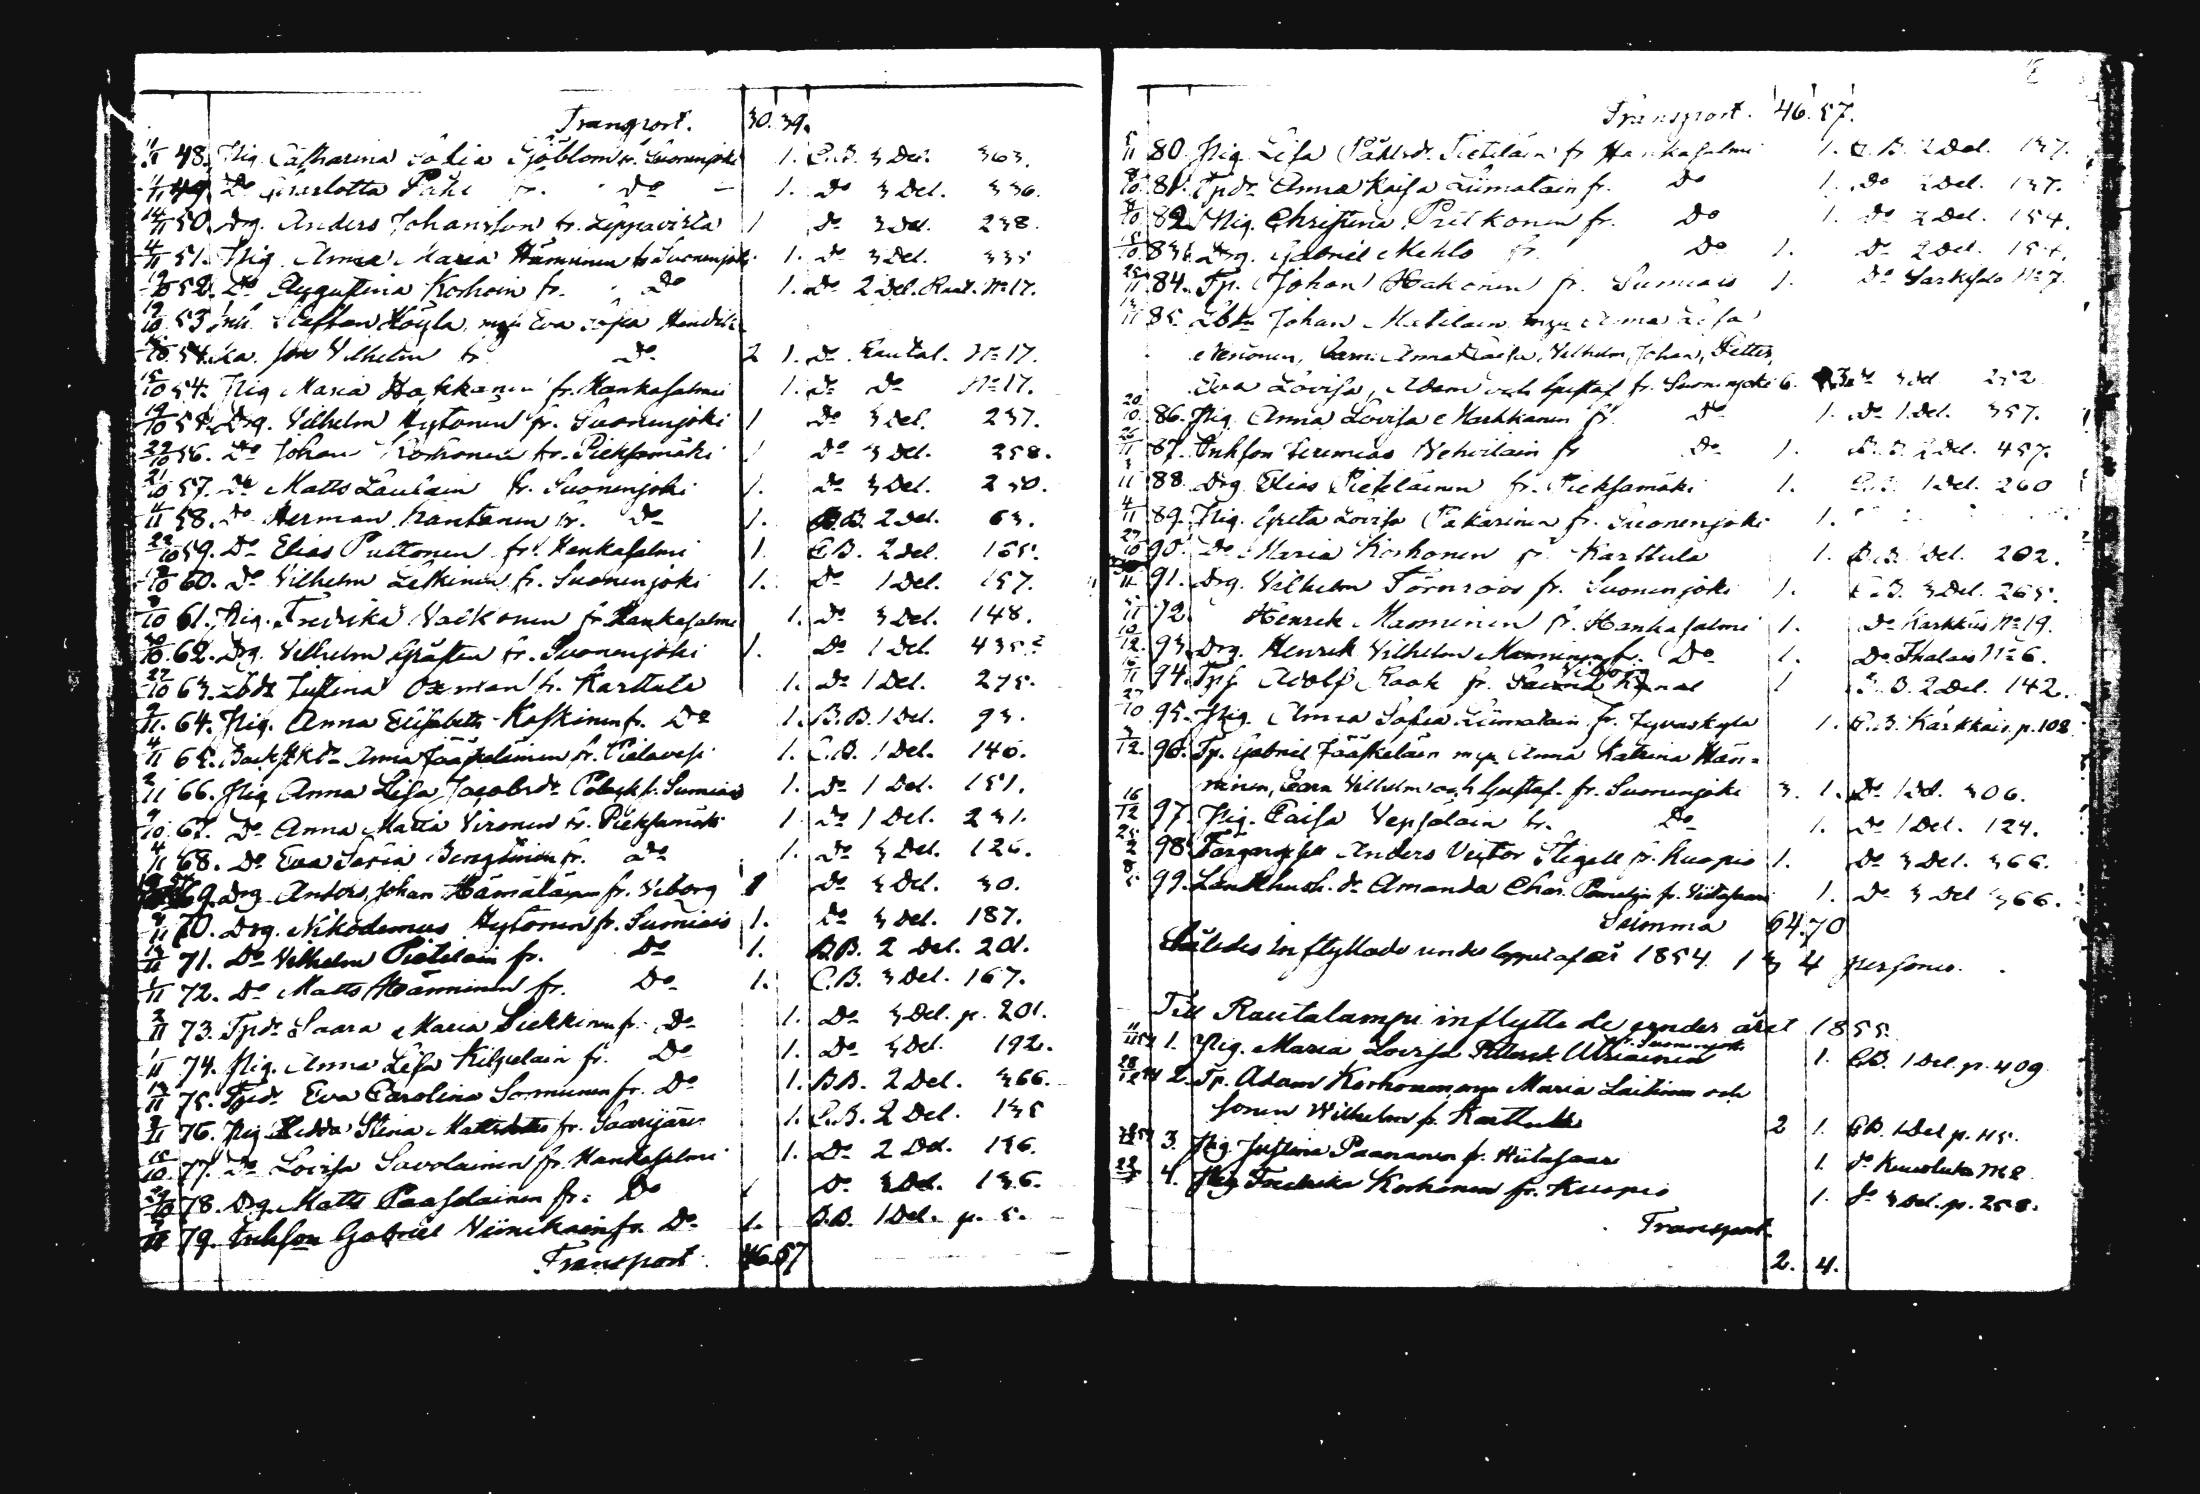 Transport. 30. 39.
11/11 48. Pig. Catharina Sofia Sjöblom fr. Suonenjoki 1. C.B. 3 Del. 363.
49. Do Charlotta Pahi fr. Do 1. Do 3 Del. 336.
14/11 50. Drg. Anders Johansson fr. Leppävirta 1 Do 3 Del. 238.
4/11 51. Pig. Anna Maria Hänninen fr Suonenjoki 1. Do 3 Del. 335
52. Do Augustina Korhoin fr. Do 1. Do 2 Del. Raut. No 17.
19/10 53 Inh. Staffan Höyla, m hu Eva Sofia Hendiks-
54. ka. son Vilhelm fr. Do 2 1. Do Rautal. No 17.
15/10 54. Pig Maria Hakkanen fr. Hankasalmi 1. Do Do No 17.
19/10 55. Drg. Vilhelm Hytönen fr. Suonenjoki 1 Do 3 Del. 237.
22/10 56. Do Johan Korhonen fr. Pieksämäki 1 Do 3 Del. 258.
21/10 57. Do Matts Laulain fr. Suonenjoki 1. Do 3 Del. 230.
4/11 58. Do Herman Kantanen fr. Do 1. B.B. 2 Del. 63.
22/10 59. Do Elias Puttonen fr. Hankasalmi 1. C.B. 2 Del. 165.
60. Do Vilhelm Letkinen fr. Suonenjoki 1. Do 1 Del. 157.
8/10 61. Pig. Fredrika Vaikonen fr. Hankasalmi 1. Do 3 Del. 148.
30/10 62. Drg. Vilhelm Gråsten fr. Suonenjoki 1. Do 1 Del. 435.
27/10 63. Justina Oxman fr. Karttula 1. Do 1 Del. 275.
2/11 64. Pig. Anna Elisabeth Koskinen fr. Do 1. B.B. 1 Del. 93.
4/11 65. Anna Jääskeläinen fr. Pielavesi 1. C.B. 1 Del. 146.
2/11 66. Pig Anna Lisa Jacobsdr fr. Sumiais 1. Do 1 Del. 151.
9/10 67. Do Anna Maria Vironen fr. Pieksämäki 1. Do 1 Del. 231.
4/11 68. Do Eva Sofia fr. Do 1. Do 3 Del. 126.
69. Drg Anders Johan Hämäläinen fr. Viborg 1 Do 3 Del. 30.
9/11 70. Drg. Nikodemus Hytönen fr. Sumiais 1. Do 3 Del. 187.
13/11 71. Do Vilhelm Pietilain fr. Do 1. B.B. 2 Del. 201.
1/11 72. Do Matts Hänninen fr. Do 1. C.B. 3 Del. 167.
2/11 73. Tpdr Saara Maria Siekkinen fr. Do 1. Do 3 Del. p. 201.
1/11 74. Pig. Anna Lisa Kilpelain fr. Do 1. Do 3 Del. 192.
13/11 75. Tpdr Eva Carolina Sormunen fr. Do 1. B.B. 2 Del. 366.
9/11 76. Pig Hedda Stina Mattsdotter fr. Saarijärvi 1. C.B. 2 Del. 135
15/10 77. Do Lovisa Savolainen fr. Hankasalmi 1. Do 2 Del. 136.
29/10 78. Drg. Matts Paasolainen fr. Do 1 Do 3 Del. 136.
79. Inhson Gabriel Viinikain fr. Do 1. B.B. 1 Del. p. 5.
Transport. 46.57
Transport. 46. 57.
5/11 80. Pig. Lisa Påhlsdr Pietiläin fr Hankasalmi 1. C.B. 2 Del. 137.
8/10 81. Tpdr Anna Kaisa Liimatain fr. Do 1. Do 2 Del. 137.
82. Pig. Christina Pulkonen fr. Do 1. Do 2 Del. 154.
15/10 83. Drg. Gabriel Mehlo fr. Do 1. Do 2 Del. 154.
25/11 84. Tp. Johan Hakonen fr. Sumiais 1. Do Sarkisalo No 7.
85 Johan Matilain m hu Anna Lisa
Nenonen, Barn: Anna Caisa, Vilhelm, Johan, Petter,
Eva Lovisa, Adam och Gustaf fr. Suonenjoki 6. 3. Do 3 Del 252
20/10 86. Pig. Anna Lovisa Markkanen fr. Do 1. Do 1 Del. 357.
26/11 87. Inhson Jeremias Vehvilain fr Do 1. B.B. 2 Del. 457.
3/11 88. Drg Elias Pieteläinen fr. Pieksämäki 1. C.B. 1 Del. 260
4/11 89. Pig. Greta Lovisa Pakarinen fr. Suonenjoki 1.
27/10 90. Do Maria Korhonen fr. Karttula 1. B.B. 1 Del. 202.
91. Drg. Vilhelm Törnroos fr. Suonenjoki 1. C.B. 3 Del. 265.
92. Henrik Manninen fr. Hankasalmi 1. Do Karkkais No 19.
10/12 93. Drg. Henrik Vilhelm Manninen fr. Do 1. Do Thalais No 6.
94. Adolf Kaak fr. Viborg 1 B.B. 2 Del. 142.
27/10 95. Pig. Anna Sofia Liimatain fr. Jyväskyla 1. C.B. Kärkkäis p. 102
3/12 96. Tp. Gabriel Jääskeläin m hu Anna Katrina Hän-
ninen, Barn Vilhelm och Gustaf. fr. Suonenjoki 3. 1. Do 1 Del. 306.
16/12 97. Pig. Caisa Vepsäläin fr. Do 1. Do 1 Del. 124.
98. Anders Victor Stigell fr. Kuopio 1. Do 3 Del. 366.
99. Amanda Char. fr. Viitasaari 1. Do 3 Del 366.
Summa 64.70
Således Inflyttade under loppet af år 1854. 134 personer.
Till Rautalampi inflyttade under året 1855.
1. Pig. Maria Lovisa fr. Suonenjoki 1. C.B. 1 Del. p. 409
2. Tp. Adam Korhonen m hu Maria Laitinen och
sonen Wilhelm fr. Karttula 2 1. C.B. 1 Del p. 115.
3. Pig. Justina Paananen fr. Viitasaari 1. Do No 2.
4. Pig Fredrika Korhonen fr. Kuopio 1. Do 3 Del. p. 258.
Transport
2. 4.